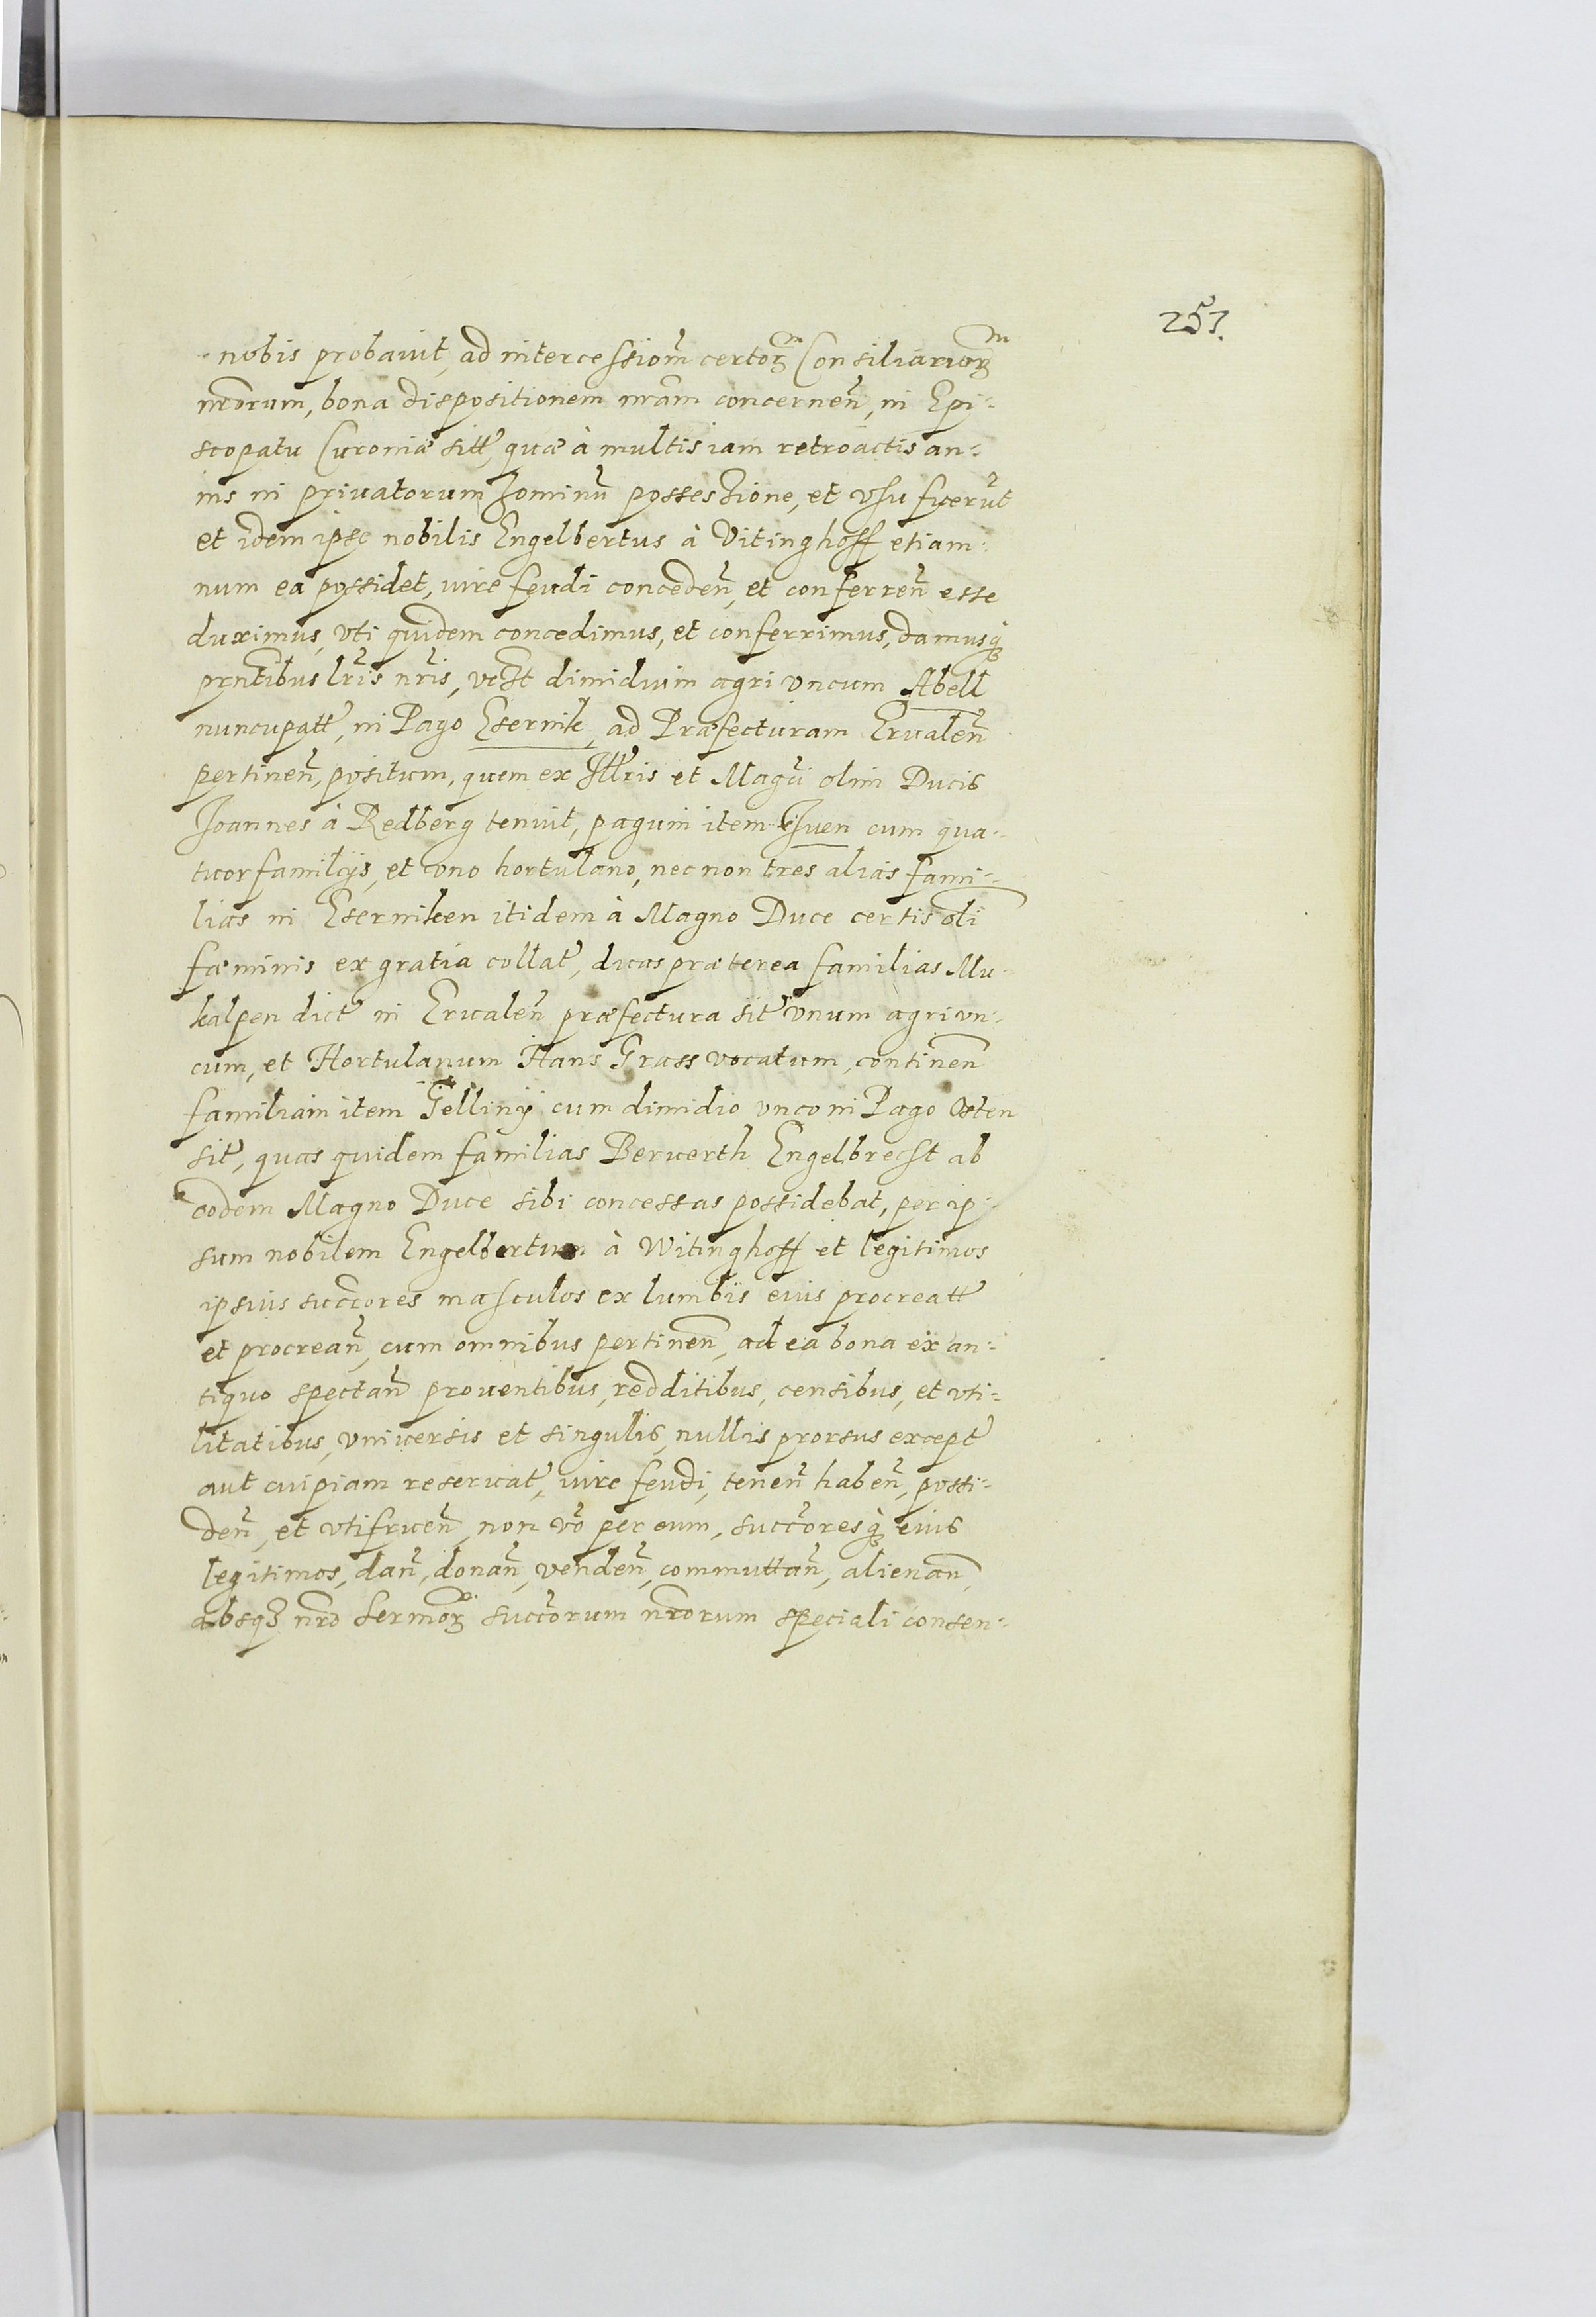 253.
nobis probauit, ad intercessiom̃ certoꝝ Consiliarioꝝ
nr̃orum, bona dispositionem nr̃am concernen̄, in Epi-
scopatu Curoniæ sitt̃, quæ à multis iam retroactis an-
nis in priuatorum hominũ possessione, et vsu fuerũt
et idem ipse nobilis Engelbertus à Vitinghoff etiam-
num ea possidet, iure feudi conceden̄, et conferren̄ esse
duximus, vti quidem concedimus, et conferrimus, damusq́ꝫ
pr̃ntibus lr̃is nr̃is, vdt̃ dimidium agri vncum Abell
nuncupatt̃, in Pago Esernik, ad Præfecturam Erualen̄
pertinen̄, positum, quem ex Illr̃is et Magũi olim Ducis
Joannes à Redberg tenuit, pagum item Juen cum qua-
tuor familijs, et vno hortulano, nec non tres alias fami-
lias in Eserniken itidem à Magno Duce certis oli
fæminis ex gratia collat̃, duas præterea familias Mu-
kalpen dict̃ in Erualen̄ præfectura sit̃ vnum agri vn-
cum, et Hortulanum Hans Grass vocatum, continen̄
familiam item Gelliny cum dimidio vnco in Pago Osten
sit̃, quas quidem familias Berwerth Engelbrecht ab
eodem Magno Duce sibi concessas possidebat, per ip-
sum nobilem Engelbertum à Witinghoff et legitimos
ipsius succ̃ores masculos ex lumbis eius procreatt̃
et procrean̄, cum omnibus pertinen̄, ad ea bona ex an-
tiquo spectan̄ prouentibus, redditibus, censibus, et vti-
litatibus, vniuersis et singulis, nullis prorsus except̃
aut cuipiam reseruat̃, iure feudi, tenen̄ haben̄, possi-
den̄, et vtifruen̄, non vo̊ per eum, succ̃oresq́ꝫ eius
legitimos, dan̄, donan̄, venden̄, commuttan̄, alienan̄,
absqꝫ nr̃o sermoꝝ succ̃orum nr̃orum speciali consen-